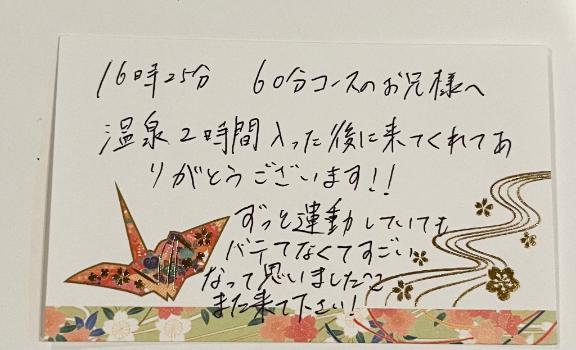 16時25分 60分コースのお兄様へ
温泉2時間入った後に来てくれてあ
りがとうございます!!
ずっと運動していても
バテてなくてすごい
なって思いました^^
また来て下さい!